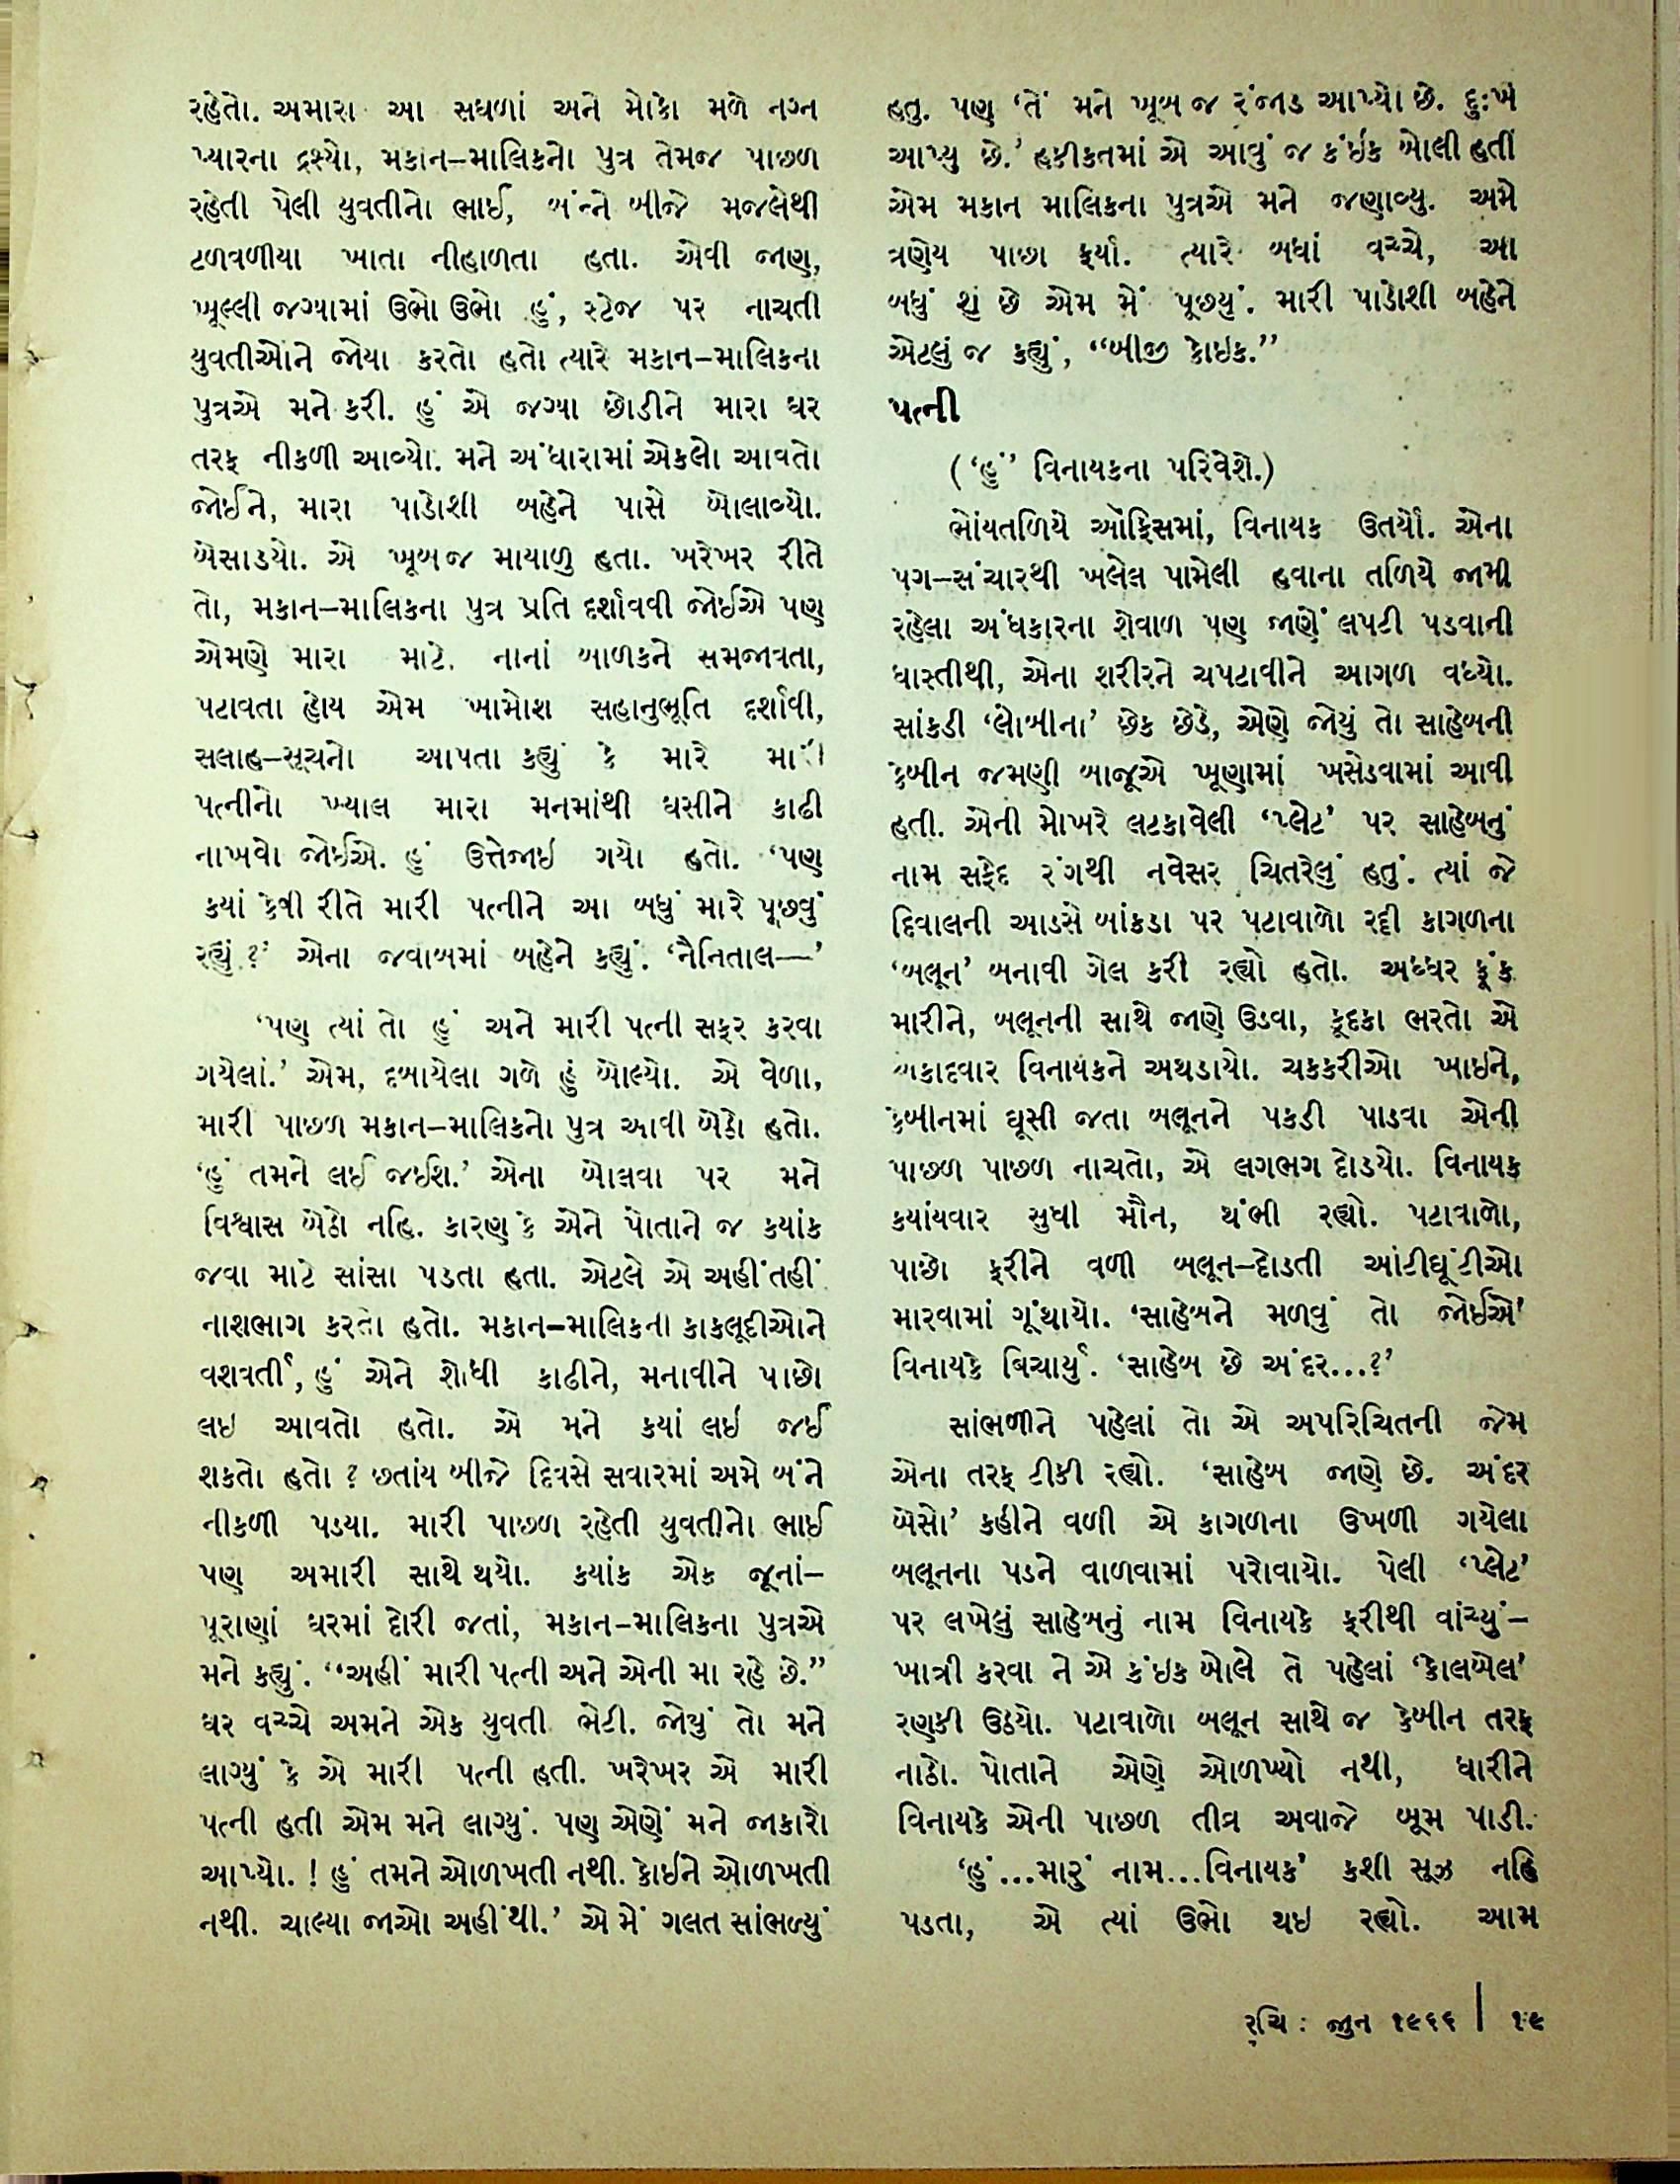 રહેતો. અમારા આ સઘળાં અને મોકો મળે નગ્ન
પ્યારના દ્રશ્યો, મકાન–માલિકનો પુત્ર તેમજ પાછળ
રહેતી પેલી યુવતીનો ભાઈ, બંન્ને બીજે મજલેથી
ટળવળીયા ખાતા નીહાળતા હતા. એવી જાણ,
ખૂલ્લી જગ્યામાં ઉભો ઉભો હું, સ્ટેજ પર નાચતી
યુવતીઓને જોયા કરતો હતો ત્યારે મકાન–માલિકના
પુત્રએ મને કરી. હું એ જગ્યા છોડીને મારા ઘર
તરફ નીકળી આવ્યો. મને અંધારામાં એકલો આવતો
જોઈને, મારા પાડોશી બહેને પાસે બોલાવ્યો.
બેસાડયો. એ ખૂબજ માયાળુ હતા. ખરેખર રીતે
તો, મકાન–માલિકના પુત્ર પ્રતિ દર્શાવવી જોઈએ પણ
એમણે મારા માટે. નાનાં બાળકને સમજાવતા,
પટાવતા હોય એમ ખામોશ સહાનુભૂતિ દર્શાવી,
સલાહ–સૂચનો આપતા કહ્યું કે મારે મારી
પત્નીનો ખ્યાલ મારા મનમાંથી ઘસીને કાઢી
નાખવો જોઈએ. હું ઉત્તેજાઇ ગયો હતો. ‘પણ
કયાં કેવી રીતે મારી પત્નીને આ બધું મારે પૂછવું
રહ્યું ?’ એના જવાબમાં બહેને કહ્યું. ‘નૈનિતાલ—’
‘પણ ત્યાં તો હું અને મારી પત્ની સફર કરવા
ગયેલાં.’ એમ, દબાયેલા ગળે હું બોલ્યો. એ વેળા,
મારી પાછળ મકાન–માલિકનો પુત્ર આવી બેઠો હતો.
‘હું તમને લઈ જઈશ.’ એના બોલવા પર મને
વિશ્વાસ બેઠો નહિ. કારણ કે એને પોતાને જ કયાંક
જવા માટે સાંસા પડતા હતા. એટલે એ અહીંતહીં
નાશભાગ કરતો હતો. મકાન–માલિકના કાકલૂદીઓને
વશવર્તી, હું એને શોધી કાઢીને, મનાવીને પાછો
લઇ આવતો હતો. એ મને કયાં લઇ જઈ
શકતો હતો ? છતાંય બીજે દિવસે સવારમાં અમે બંને
નીકળી પડયા. મારી પાછળ રહેતી યુવતીનો ભાઈ
પણ અમારી સાથે થયો. કયાંક એક જૂનાં–
પૂરાણાં ઘરમાં દોરી જતાં, મકાન–માલિકના પુત્રએ
મને કહ્યું. “અહીં મારી પત્ની અને એની મા રહે છે.”
ઘર વચ્ચે અમને એક યુવતી ભેટી. જોયું તો મને
લાગ્યું કે એ મારી પત્ની હતી. ખરેખર એ મારી
પત્ની હતી એમ મને લાગ્યું. પણ એણેં મને જાકારો
આપ્યો. ! હું તમને ઓળખતી નથી. કોઇને ઓળખતી
નથી. ચાલ્યા જાઓ અહીંથી.’ એ મેં ગલત સાંભળ્યું
હતુ. પણ ‘તેં મને ખૂબ જ રંજાડ આપ્યો છે. દુઃખ
આપ્યુ છે.’ હકીકતમાં એ આવું જ કંઇક બોલી હતી
એમ મકાન માલિકના પુત્રએ મને જણાવ્યુ. અમે
ત્રણેય પાછા ફર્યા. ત્યારે બધાં વચ્ચે, આ
બધું શું છે એમ મેં પૂછયું. મારી પાડોશી બહેને
એટલું જ કહ્યું, “બીજી કોઇક.”
પત્ની
(‘હું’ વિનાયકના પરિવેશે.)
ભોંયતળિયે ઑફિસમાં, વિનાયક ઉતર્યો. એના
પગ–સંચારથી ખલેલ પામેલી હવાના તળિયે જામી
રહેલા અંધકારના શેવાળ પણ જાણેં લપટી પડવાની
ધાસ્તીથી, એના શરીરને ચપટાવીને આગળ વધ્યો.
સાંકડી ‘લોબીના’ છેક છેડે, એણે જોયું તો સાહેબની
કેબીન જમણી બાજૂએ ખૂણામાં ખસેડવામાં આવી
હતી. એની મોખરે લટકાવેલી ‘પ્લેટ’ પર સાહેબનું
નામ સફેદ રંગથી નવેસર ચિતરેલું હતું. ત્યાં જે
દિવાલની આડસે બાંકડા પર પટાવાળો રદ્દી કાગળના
‘બલૂન’ બનાવી ગેલ કરી રહ્યો હતો. અધ્ધર ફૂંક
મારીને, બલૂનની સાથે જાણે ઉડવા, કૂદકા ભરતો એ
એકાદવાર વિનાયકને અથડાયો. ચકકરીઓ ખાઇને,
કેબીનમાં ઘૂસી જતા બલૂનને પકડી પાડવા એની
પાછળ પાછળ નાચતો, એ લગભગ દોડયો. વિનાયક
કયાંયવાર સુધી મૌન, થંભી રહ્યો. પટાવાળો,
પાછો ફરીને વળી બલૂન–દોડતી આંટીઘૂંટીઓ
મારવામાં ગૂંથાયો. ‘સાહેબને મળવું તો જોઈએ’
વિનાયકે વિચાર્યું. ‘સાહેબ છે અંદર...?’
સાંભળીને પહેલાં તો એ અપરિચિતની જેમ
એના તરફ ટીકી રહ્યો. ‘સાહેબ જાણે છે. અંદર
બેસો’ કહીને વળી એ કાગળના ઉખળી ગયેલા
બલૂનના પડને વાળવામાં પરોવાયો. પેલી ‘પ્લેટ’
પર લખેલું સાહેબનું નામ વિનાયકે ફરીથી વાંચ્યું–
ખાત્રી કરવા ને એ કંઇક બોલે તે પહેલાં ‘કોલબેલ’
રણકી ઉઠયો. પટાવાળો બલૂન સાથે જ કેબીન તરફ
નાઠો. પોતાને એણે ઓળખ્યો નથી, ધારીને
વિનાયકે એની પાછળ તીવ્ર અવાજે બૂમ પાડી.
‘હું...મારું નામ...વિનાયક’ કશી સૂઝ નહિ
પડતા, એ ત્યાં ઉભો થઇ રહ્યો. આમ
રુચિ : જુન ૧૯૬૬ | ૧૯